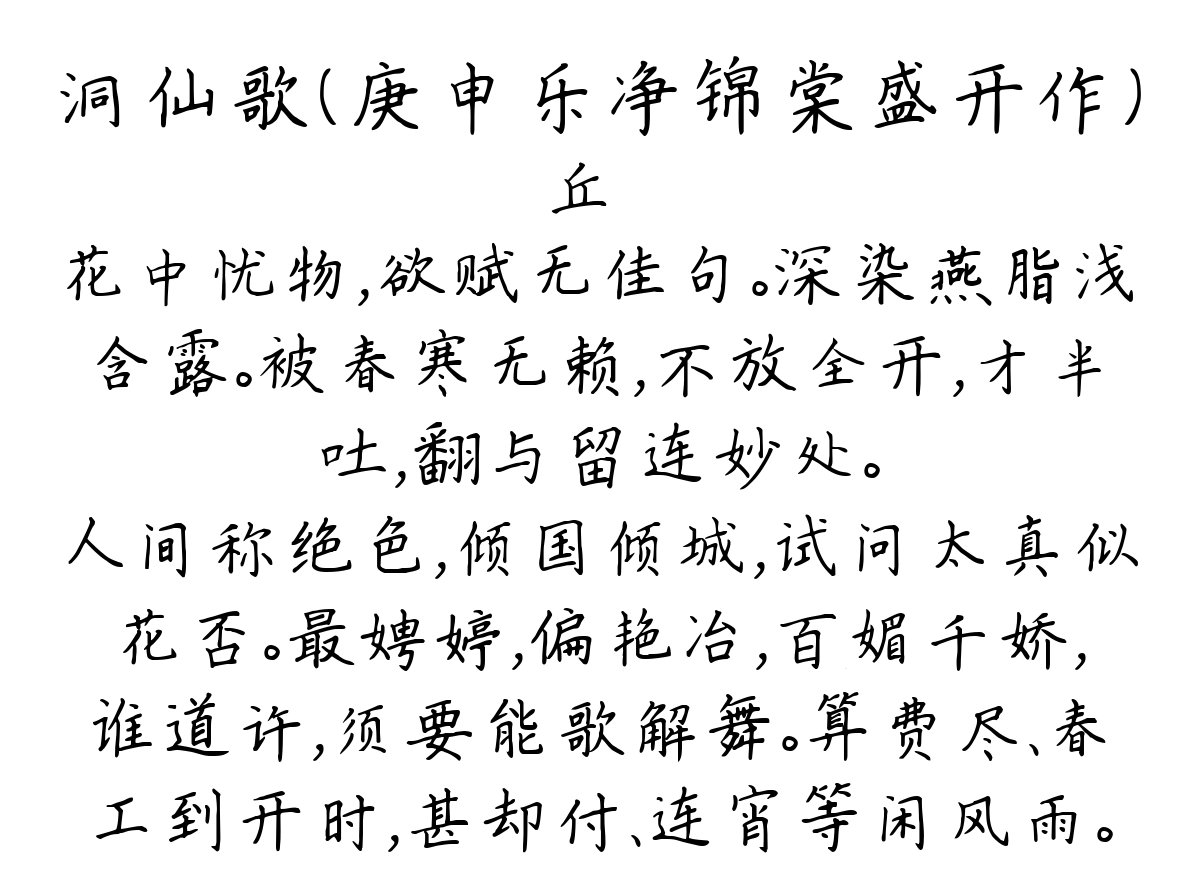 洞仙歌(庚申乐净锦棠盛开作)
丘
花中忧物,欲赋无佳句。深染燕脂浅
含露。被春寒无赖,不放全开,才半
吐,翻与留连妙处。
人间称绝色,倾国倾城,试问太真似
花否。最娉婷,偏艳冶,百媚千娇,
谁道许,须要能歌解舞。算费尽、春
工到开时,甚却付、连宵等闲风雨。